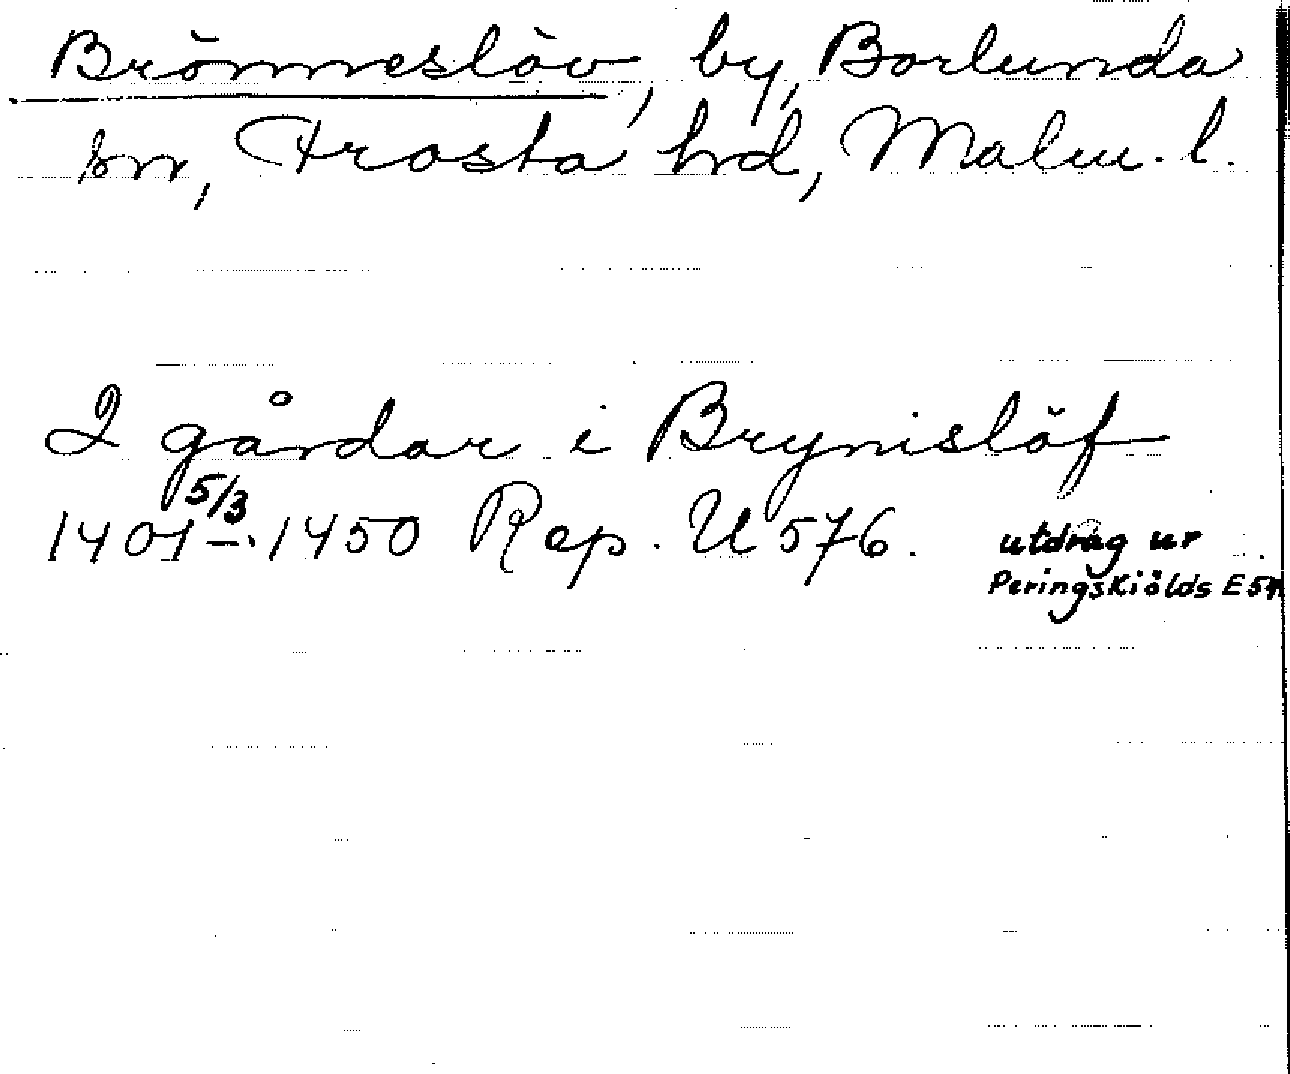 Brönneslöv, by, Borlunda
sn, Frosta hd, Malm. l.
2 gårdar i Brynislöf
5/3
1401 - 1450 Rep. U 576.
utdrag ur
Peringskiölds E